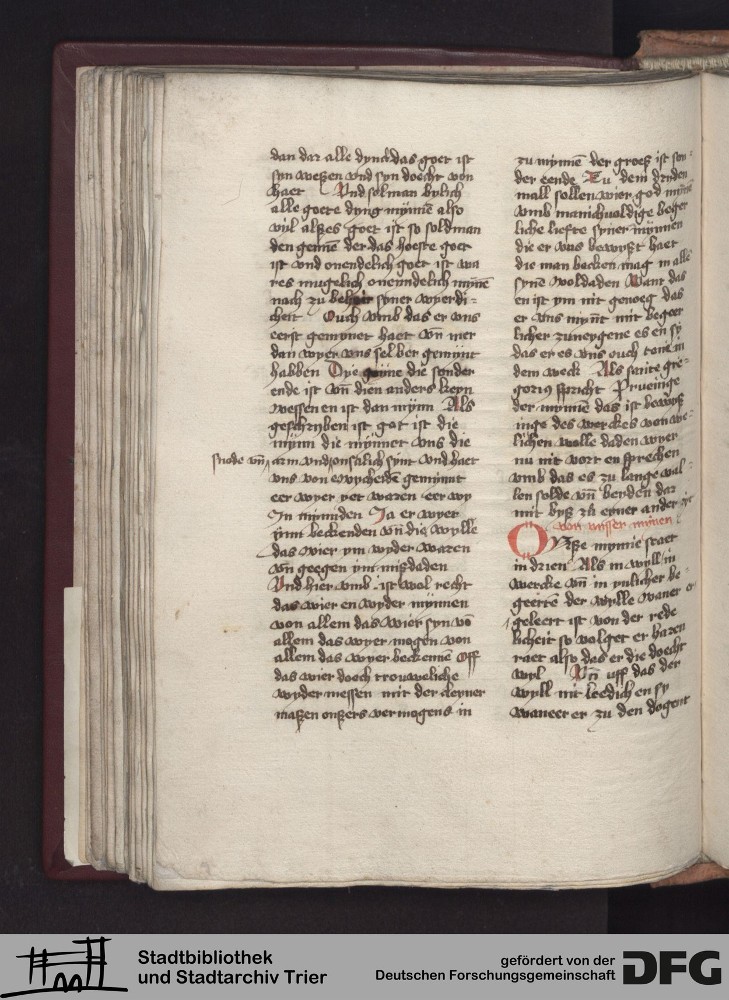 dan dar alle dynck das goet ist
syn weßen vnd syn doecht von
haet Vnd sol man bylich
alle goete dyng mynnē also
vyl alßes goet ist so sold man
den gennē der das hoeste goet
ist vnd onendelich goet ist wa
res mugelich oneindelich mynē
nach zu syner wyerdi=
cheit Ouch vmb das er vns
eerst gemynet haet vn̄ mer
dan wyer vns selber gemynt
habben Dye die sonder
ende ist vn̄ dien anders keyn
wessen en ist dan mynn Als
geschryben ist got ist die
mynn die mynnet vns die
snode vn̄ arm vnd onsalich synt vnd haet
vns von ewycheide gemynnt
eer wyer yet waren eer wy
In mynnden Ja er wyer
ynn beckenden vn̄ die wylle
das wier ym wyder waren
vn̄ geegen ym misdaden
Vnd hier vmb ist wol recht
das wier en wyder mynnen
von allem das wier syn vō
allem das wyer mogen von
allem das wyer beckennē Off
das wier doech trouweliche
wyder messen mit der cleyner
maßen onßers vermogens in
zu mynnē der groeß ist son=
der eende Zu dem dryden
mall sollen wier god mynē
vmb manichualdige beger
liche liefte syner mynnen
die er vns bewyst haet
die man becken mag in allē
synē woldaden Want das
en ist ym nit genoeg das
er vns mynt mit begeer
licher zuneygene es en sy
das er es vns ouch
dem werck Als sante gre=
gorius spricht Prueuinge
der mynnē das ist bewyß
inge des werckes von wer
lichen wolle daden wyer
nu nit vort en sprechen
vmb das es zu lange val=
len solde vn̄ beyden dar
mit byß zu eyner ander zyt
von vnsser mynnen
Onße mynne staet
in drien Als in wyll in
wercke vn̄ in ynlicher be=
geerte der wylle waner er
geleert ist von der rede
licheit so volget er haren
raet also das er die doecht
wyl Vn̄ vff das der
wyll nit leedich en sy
waneer er zu den dogent
Stadtbibliothek
und Stadtarchiv Trier
gefördert von der
Deutschen Forschungsgemeinschaft
DFG